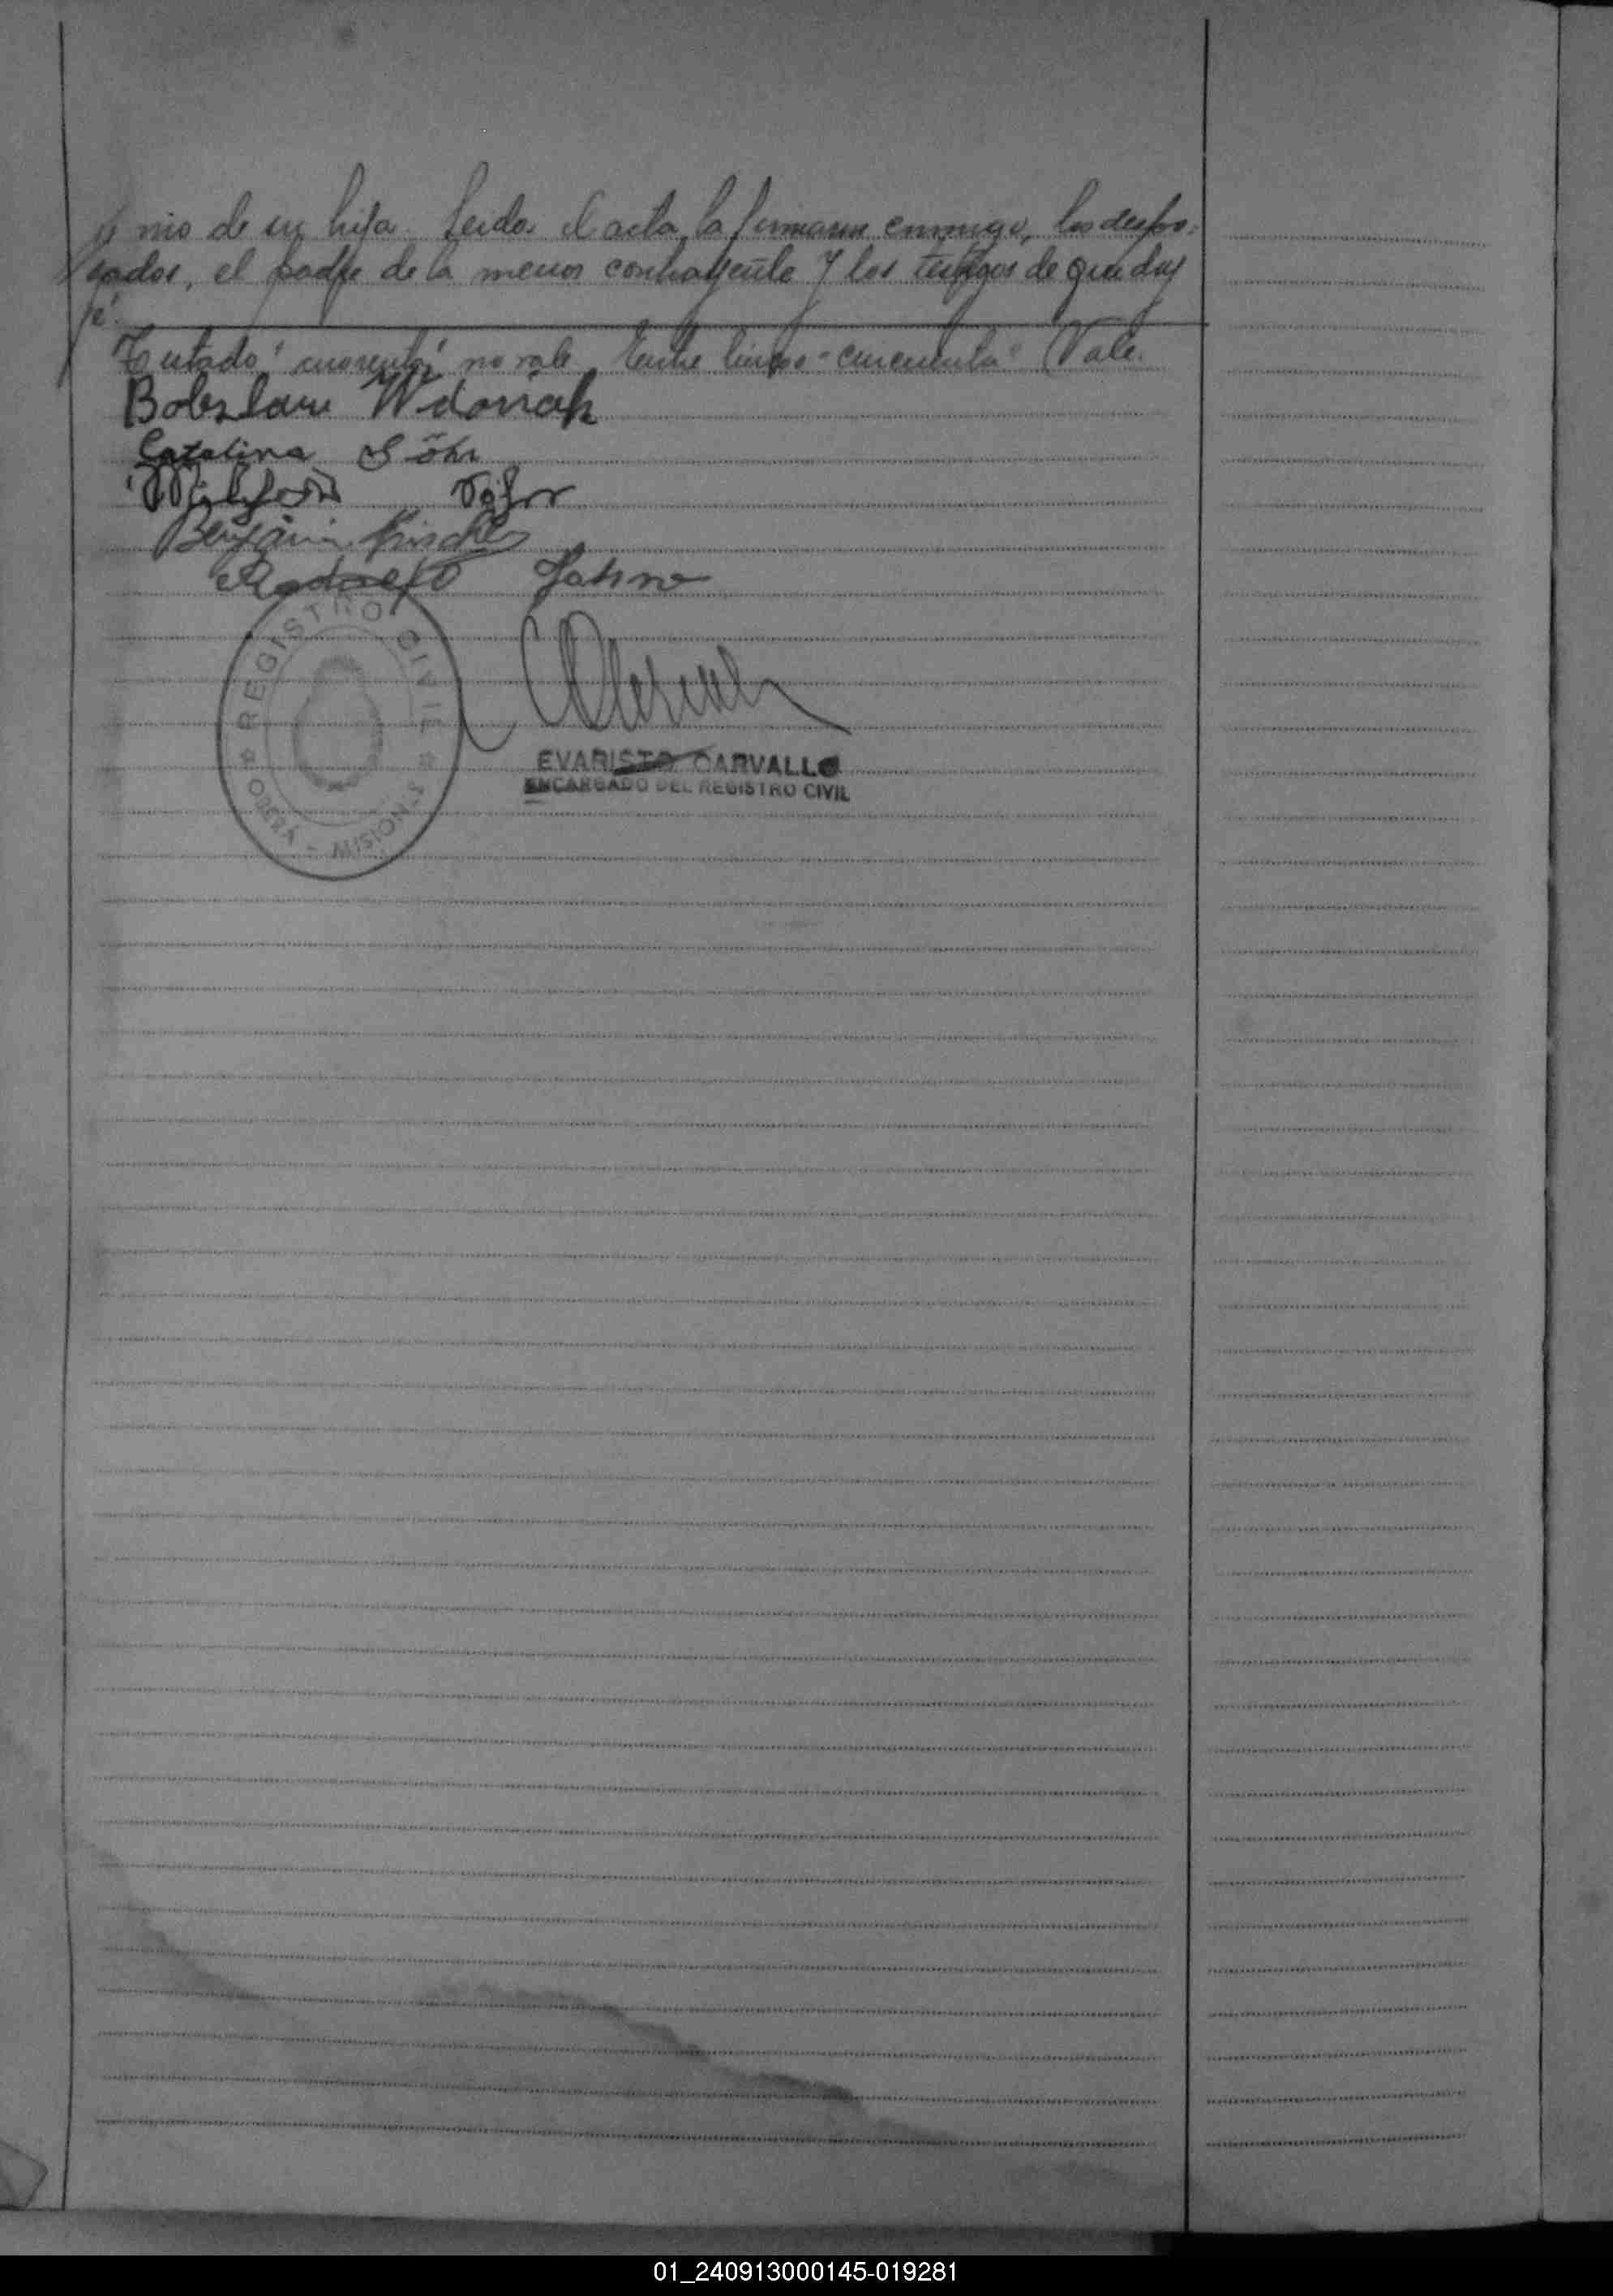 nio de su hija. Leida el acta, la firmaron conmigo, los despo-
sados, el padre de la menor contrayente y los testigos de que doy
fé.
Testado "cuarenta" no vale. Entre lineas "cincuenta" Vale.
Boleslaw Wdoviak
Catalina Söhr
Benjamin
Rodolfo Hahne
REGISTRO CIVIL
OBERÁ - MISIONES
EVARISTO CARVALLO
ENCARGADO DEL REGISTRO CIVIL
01_240913000145-019281